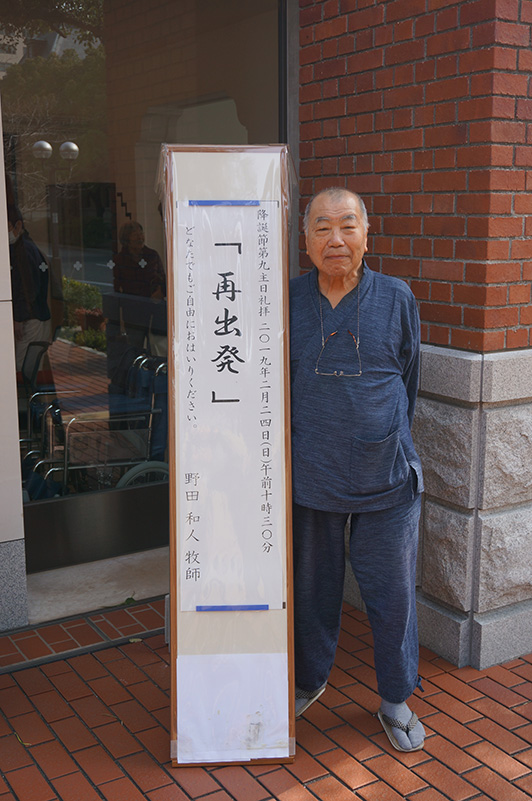 降誕節第九主日礼拝 二〇一九年二月二四日(日)午前十時三〇分
「再出発」
どなたでもご自由におはいりください。
野田 和人 牧師